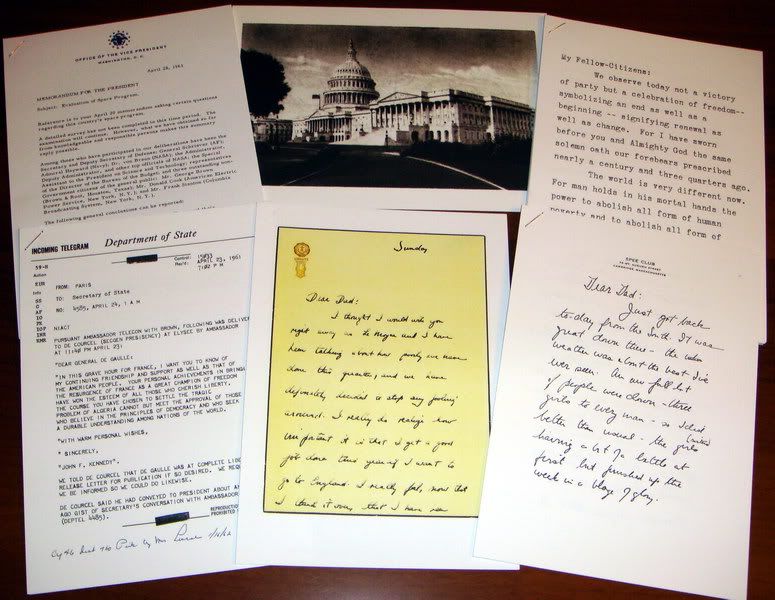 OFFICE OF THE VICE PRESIDENT
WASHINGTON, D.C.
April 28, 1961
MEMORANDUM FOR THE PRESIDENT
Subject: Evaluation of Space Program.
Reference is to your April 20 memorandum asking certain questions
regarding this country's space program.
A detailed survey has not been completed in this time period. The
examination will continue. However, what we have obtained so far
from knowledgeable and responsible persons makes this summary
reply possible.
Among those who have participated in our deliberations have been the
Secretary and Deputy Secretary of Defense; General Schriever (AF);
Admiral Hayward (Navy); Dr. von Braun (NASA); the Administrator,
Deputy Administrator, and other top officials of NASA; the Special
Assistant to the President on Science and Technology; representatives
of the Director of the Bureau of the Budget; and three outstanding non-
Government citizens of the general public: Mr. George Brown
(Brown & Root, Houston, Texas); Mr. Donald Cook (American Electric
Power Service, New York, N.Y.); and Mr. Frank Stanton (Columbia
Broadcasting System, New York, N.Y.).
The following general conclusions can be reported:
My Fellow-Citizens:
We observe today not a victory
of party but a celebration of freedom--
symbolizing an end as well as a
beginning -- signifying renewal as
well as change. For I have sworn
before you and Almighty God the same
solemn oath our forebears prescribed
nearly a century and three quarters ago.
The world is very different now.
For man holds in his mortal hands the
power to abolish all form of human
poverty and to abolish all form of
INCOMING TELEGRAM Department of State
59-H
Action
EUR
Info
SS
G
SP
C
Control: 15033
Rec'd: APRIL 23, 1961
7:02 PM
FROM: PARIS
TO: Secretary of State
NO: 4585, APRIL 24, 1 AM
NIACT
PURSUANT AMBASSADOR TELECON WITH BROWN, FOLLOWING WAS DELIVER
TO DE COURCEL (SECGEN PRESIDENCY) AT ELYSEE BY AMBASSADOR
AT 11:40 PM APRIL 23:
"DEAR GENERAL DE GAULLE:
"IN THIS GRAVE HOUR FOR FRANCE, I WANT YOU TO KNOW OF
MY CONTINUING FRIENDSHIP AND SUPPORT AS WELL AS THAT OF
THE AMERICAN PEOPLE. YOUR PERSONAL ACHIEVEMENTS IN BRINGI
THE RESURGENCE OF FRANCE AS A GREAT CHAMPION OF FREEDOM
HAVE WON THE ESTEEM OF ALL THOSE WHO CHERISH LIBERTY.
THE COURSE YOU HAVE CHOSEN TO SETTLE THE TRAGIC
PROBLEM OF ALGERIA CANNOT BUT MEET THE APPROVAL OF THOSE
WHO BELIEVE IN THE PRINCIPLES OF DEMOCRACY AND WHO SEEK
A DURABLE UNDERSTANDING AMONG NATIONS OF THE WORLD.
"WITH WARM PERSONAL WISHES,
" SINCERELY,
"JOHN F. KENNEDY".
WE TOLD DE COURCEL THAT DE GAULLE WAS AT COMPLETE LIBE
RELEASE LETTER FOR PUBLICATION IF SO DESIRED. WE REQU
WE BE INFORMED SO WE COULD DO LIKEWISE.
DE COURCEL SAID HE HAD CONVEYED TO PRESIDENT ABOUT AN
AGO GIST OF SECRETARY'S CONVERSATION WITH AMBASSADOR
(DEPTEL 4485).
REPRODUCTION
PROHIBITED
Sunday
Dear Dad:
I thought I would write you
right away as Le Moyne and I have
been talking about how poorly we have
done this quarter, and we have
definitely decided to stop any fooling
around. I really do realize how
important it is that I get a good
job done this year if I want to
go to England. I really feel, now that
I think it over, that I have been
SPEE CLUB
CAMBRIDGE, MASSACHUSETTS
Dear Dad:
Just got back
to-day from the South. It was
great down there - the
weather was about the best I've
ever seen. An awful lot
of people were down - three
girls to every man - so I did
better than usual - the girls
having a lot
first but finished up the
week in a blaze of glory.